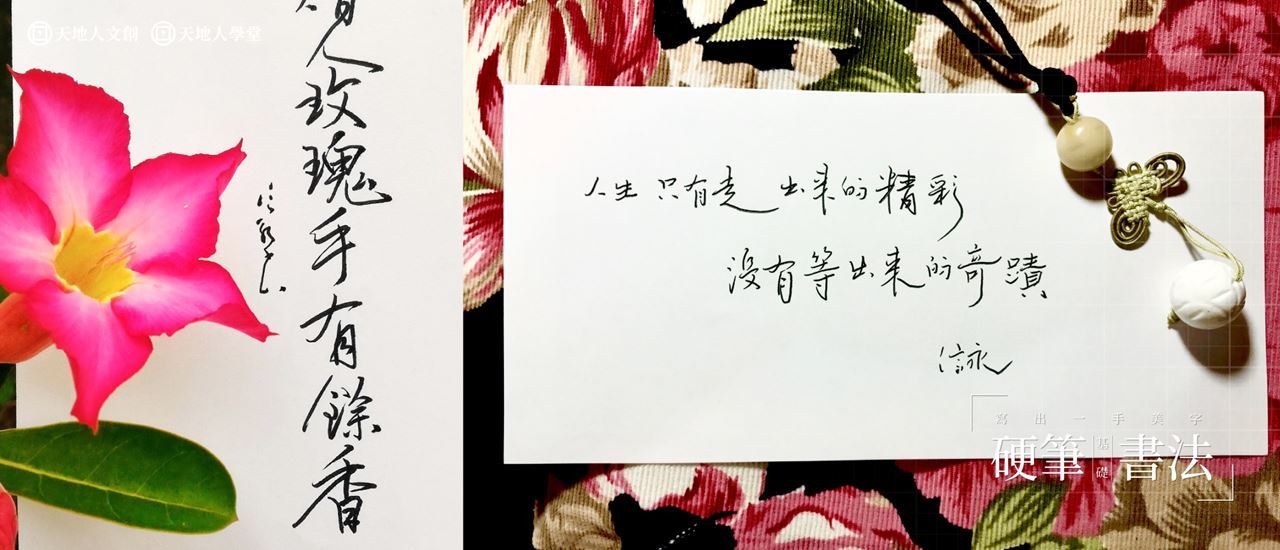 天地人文創 天地人學堂
人玫瑰手有餘香
人生只有走出來的精彩
沒有等出來的奇蹟
信永
寫出一手美字
硬筆基礎書法